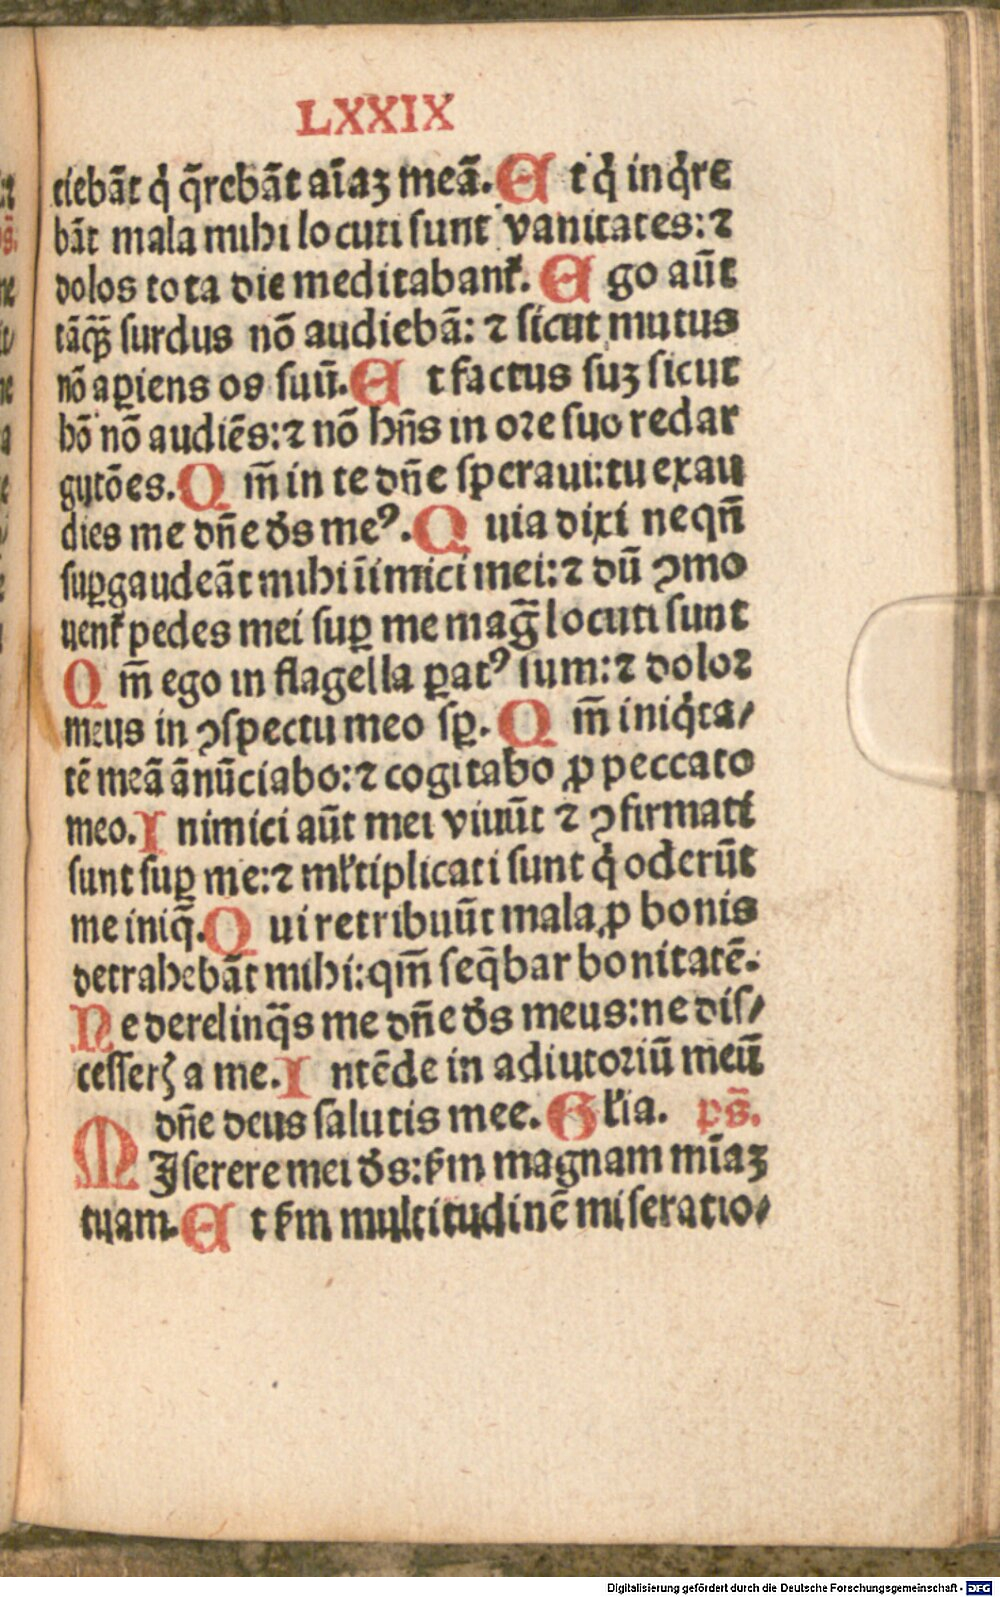 LXXIX
ciebāt q̇ q̄rebāt aīaꝫ meā. Et q̇ inq̇re
bāt mala mihi locuti sunt vanitates: ⁊
dolos tota die meditabant᷑. Ego aūt
tāqꝫ̄ surdus nō audiebā: ⁊ sicut mutus
nō apiens os suū. Et factus suꝫ sicut
hō nō audiēs: ⁊ nō hn̄s in ore suo redar
gutōes. Qm̄ in te dn̄e speraui: tu exau
dies me dn̄e d̄s meꝰ. Quia dixi neqn̄
suꝑgaudeāt mihi iīmici mei: ⁊ dū ꝯmo
uent᷑ pedes mei suꝑ me maḡ locuti sunt
Qm̄ ego in flagella ꝑatꝰ sum: ⁊ dolor
meus in ꝯspectu meo sꝑ. Qm̄ iniq̇ta/
tē meā ānūciabo: ⁊ cogitabo ꝓ peccato
meo. Inimici aūt mei viuūt ⁊ ꝯfirmati
sunt suꝑ me: ⁊ ml̓tiplicati sunt q̇ oderūt
me iniq̄. Qui retribuūt mala ꝓ bonis
detrahebāt mihi: qm̄ seq̄bar bonitatē.
Ne derelinq̄s me dn̄e d̄s meus: ne dis/
cesserꝭ a me. Intēde in adiutoriū meū
dn̄e deus salutis mee. Gl̓ia. ps̄.
MIserere mei d̄s: ẜm magnam mīaꝫ
tuam. Et ẜm multitudinē miseratio/
Digitalisierung gefördert durch die Deutsche Forschungsgemeinschaft - DFG